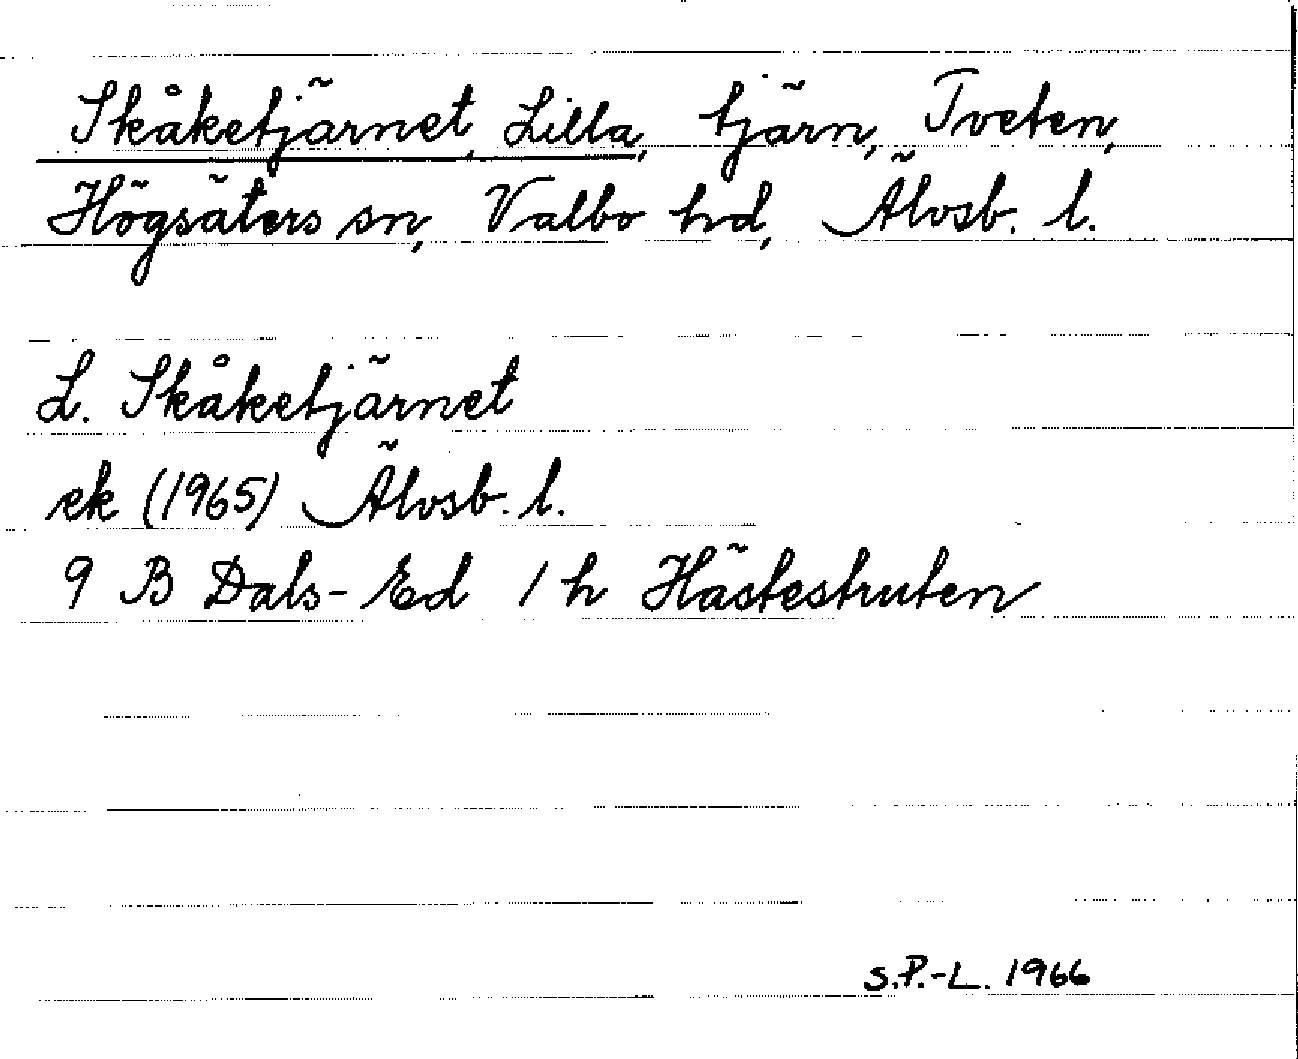 Skåketjärnet, Lilla, tjärn, Tveten,
Högsäters sn, Valbo hd, Älvsb. l.
L. Skåketjärnet
ek (1965) Älvsb. l.
9 B Dals-Ed 1 h Hästestruten
S.P.-L. 1966